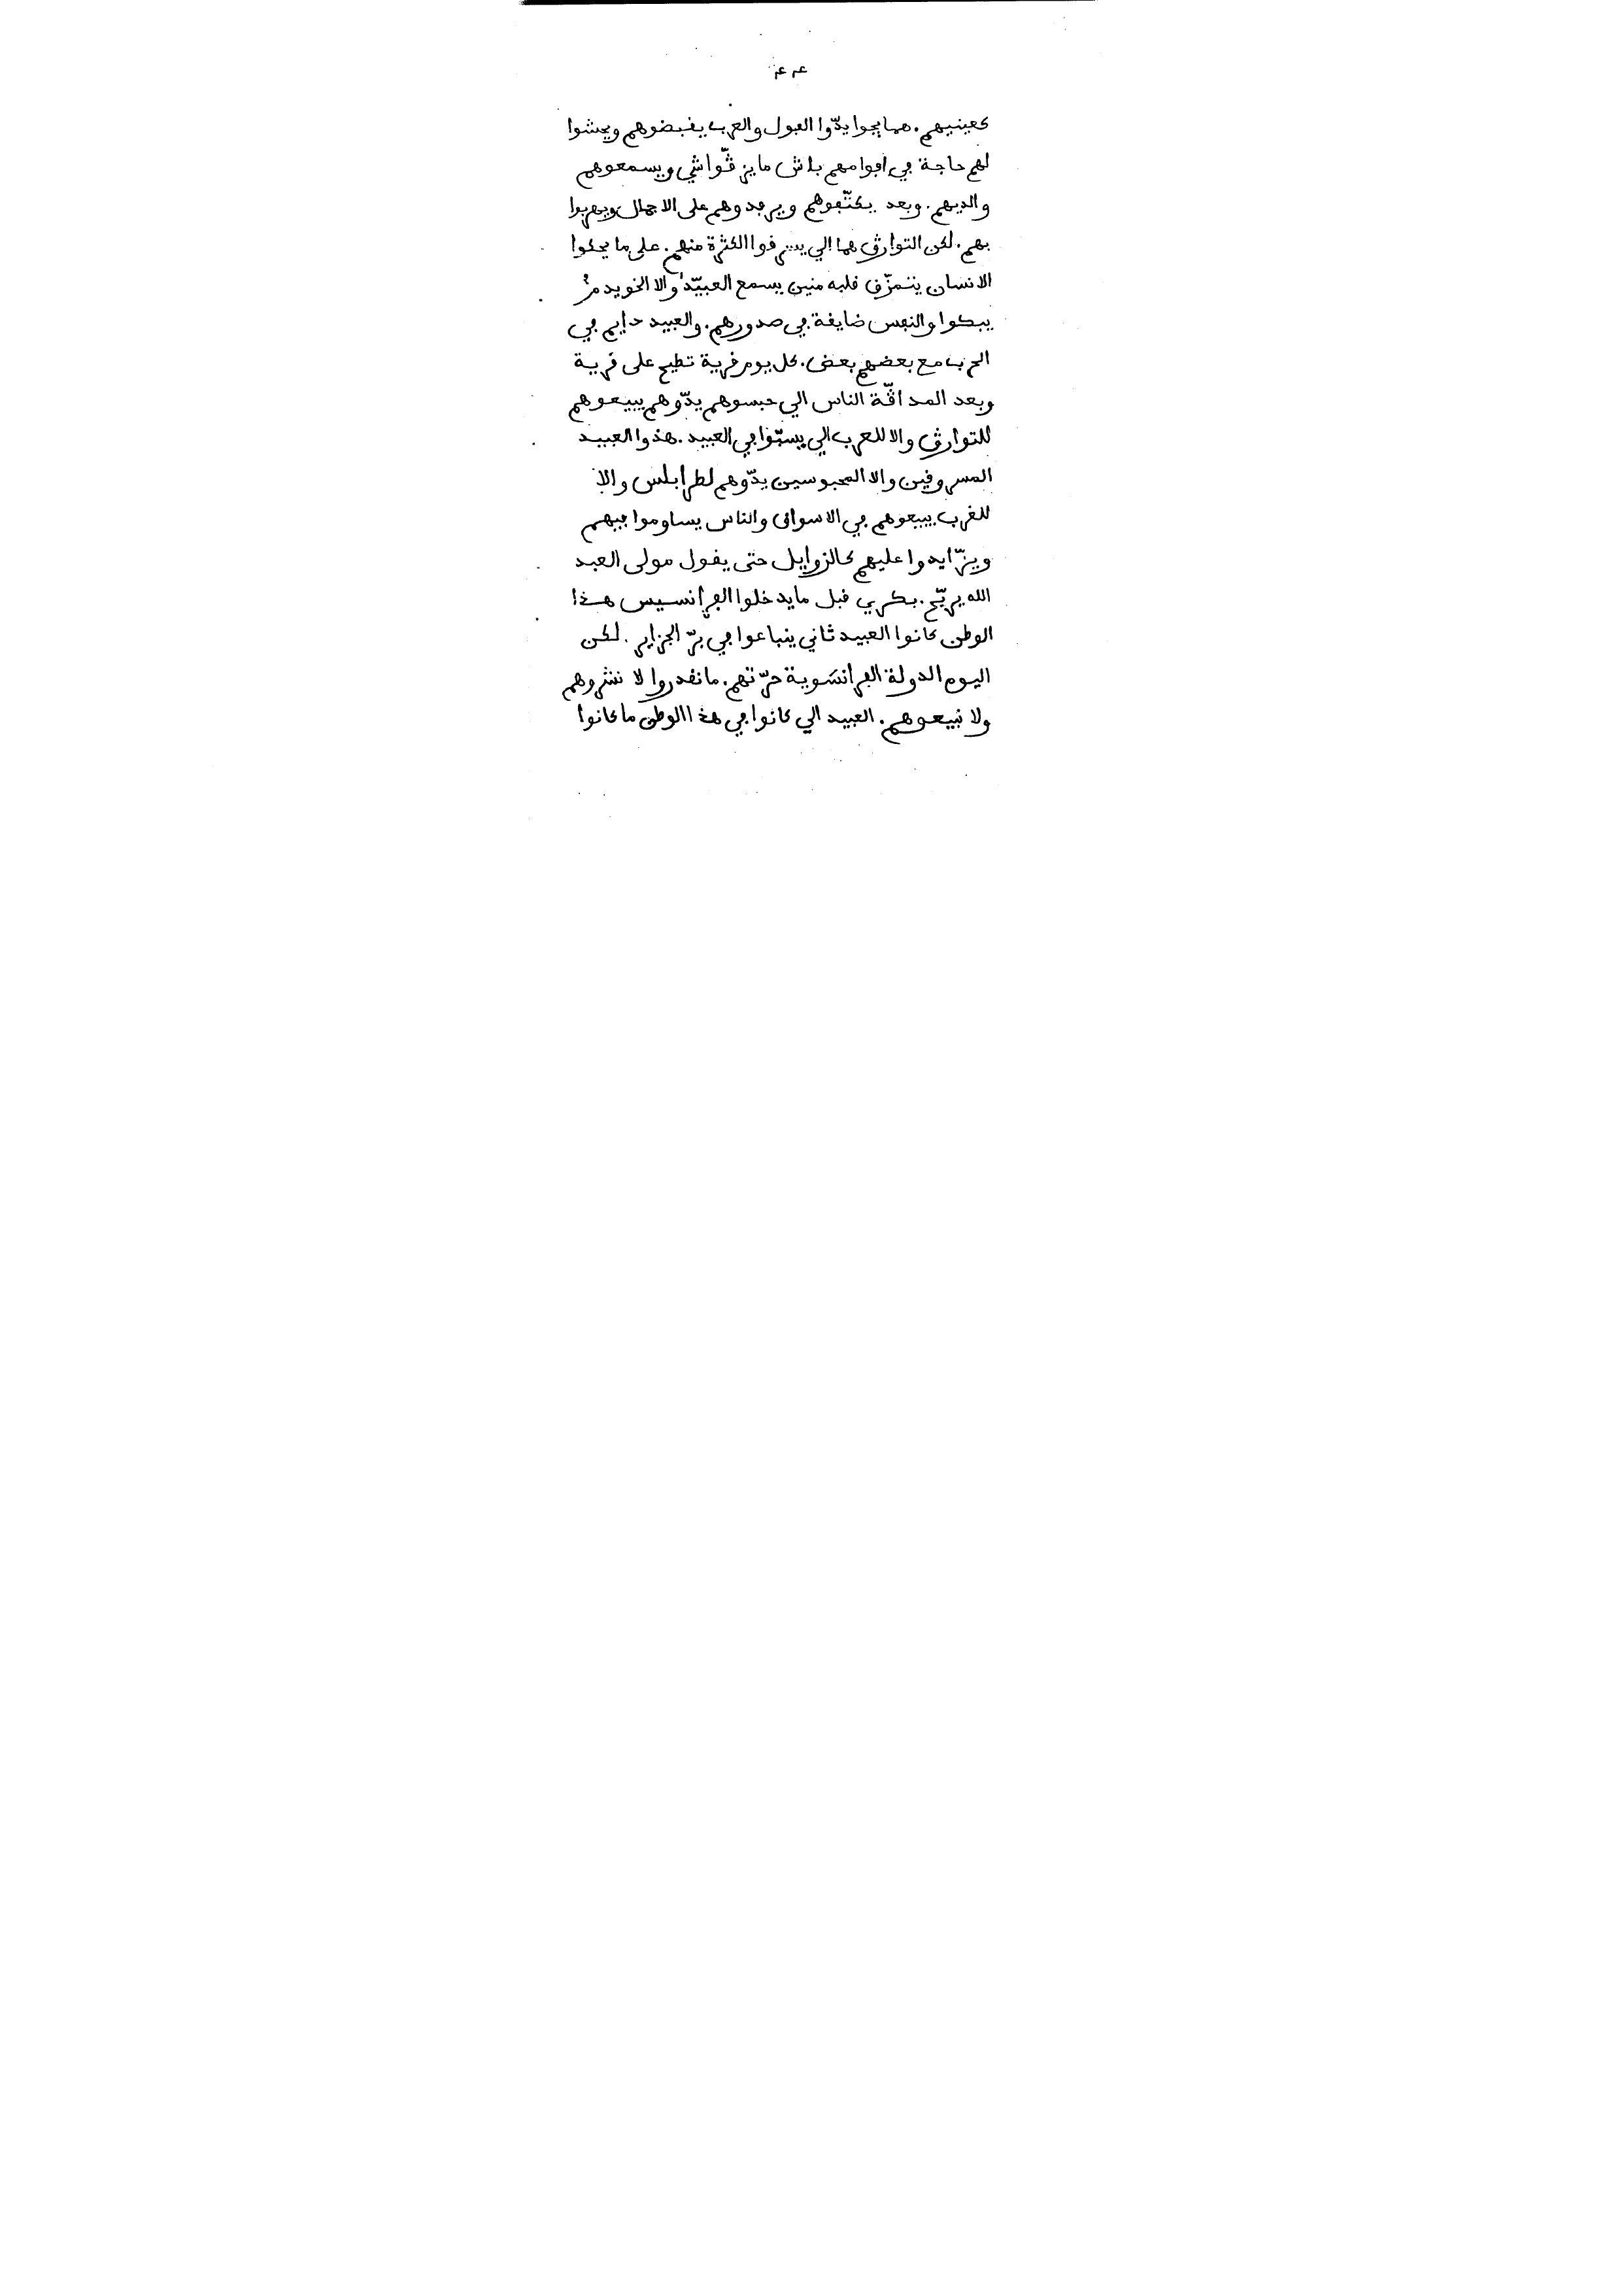 ٤٤
كعينيهم. هما يجوا يدّوا الفول والعرب يقبضوهم ويحشوا
لهم حاجة في افوامهم باش ما يزڤّواشي ويسمعوهم
والديهم. وبعد يكتّفوهم ويرفدوهم على الاجمال ويهربوا
بهم. لكن التوارڤ هما الي يسرقوا الكثرة منهم. على ما يحكوا
الانسان يتمزّق قلبه منين يسمع العبيّد والا الخويدم
يبكوا والنفس ضايقة في صدورهم. والعبيد دايم في
الحرب مع بعضهم بعض. كل يوم قرية تطيح على قرية
وبعد المداڤّة الناس الي حبسوهم يدّوهم يبيعوهم
للتوارڤ والا للعرب الي في العبيد. هذوا العبيد
المسروقين والا المحبوسين يدّوهم لطرابلس والا
للغرب يبيعوهم في الاسواق والناس يساوموا فيهم
ويزّايدوا عليهم كالزوايل حتى يقول مولى العبد
الله يربّح. بكري قبل ما يدخلوا الفرانسيس هذا
الوطن كانوا العبيد ثاني ينباعوا في برّ الجزاير. لكن
اليوم الدولة الفرانسَوية حرّرتهم. ما نقدروا لا نشروهم
ولا نبيعوهم. العبيد الي كانوا في هذا الوطن ما كانوا